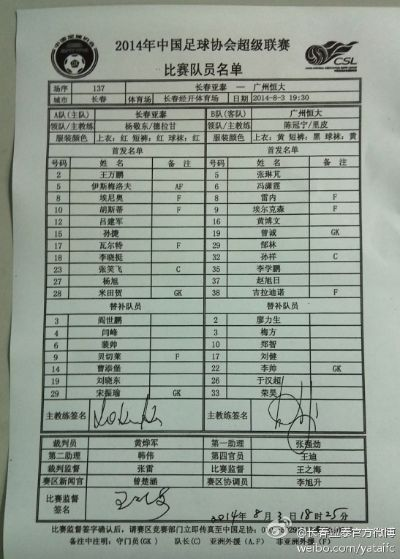 2014年中国足球协会超级联赛
CSL
比赛队员名单
场序 137 长春亚泰 — 广州恒大
城市 长春 体育场 长春经开体育场 日期 2014-8-3 19:30
A队(主队) 长春亚泰 B队(客队) 广州恒大
领队/主教练 杨敬东/德拉甘 领队/主教练 陈冠宁/里皮
服装颜色 上衣: 红 短裤: 红 球袜: 红 服装颜色 上衣: 黄 短裤: 黑 球袜: 黄
首发名单 首发名单
号码 姓名 备注 号码 姓名 备注
2 王万鹏 5 张琳芃
5 伊斯梅洛夫 AF 6 冯潇霆
8 埃尼奥 F 8 雷内 F
10 胡斯蒂 F 9 埃尔克森 F
12 吕建军 16 黄博文
15 孙捷 19 曾诚 GK
17 瓦尔特 F 29 郜林
18 李晓挺 32 孙祥 C
23 张笑飞 C 35 李学鹏
27 杨旭 37 赵旭日
28 米田贺 GK 38 吉拉迪诺 F
替补队员 替补队员
3 阎世鹏 2 廖力生
4 闫峰 3 梅方
6 裴帅 10 郑智
9 贝切莱 F 17 刘健
14 曹添堡 22 李帅 GK
19 刘晓东 26 于汉超
29 宋振瑜 GK 33 荣昊
主教练签名 主教练签名
裁判员 黄烨军 第一助理 张强劲
第二助理 韩伟 第四官员 王迪
裁判监督 张雷 比赛监督 王之海
赛区新闻官 曾楚涵 赛区协调员 李旭升
比赛监督
签名
2014年8月3日18时25分
比赛监督签字确认后，请赛区竞赛部门立即传真至中国足协:
备注中注明: 守门员(GK) 队长(C) 亚洲外援(A.F) 非亚洲外援(F)
@长春亚泰官方微博
weibo.com/yataifc